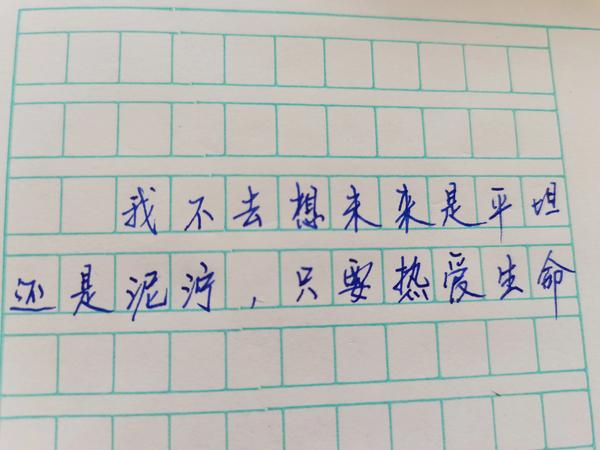 我不去想未来是平坦
还是泥泞，只要热爱生命